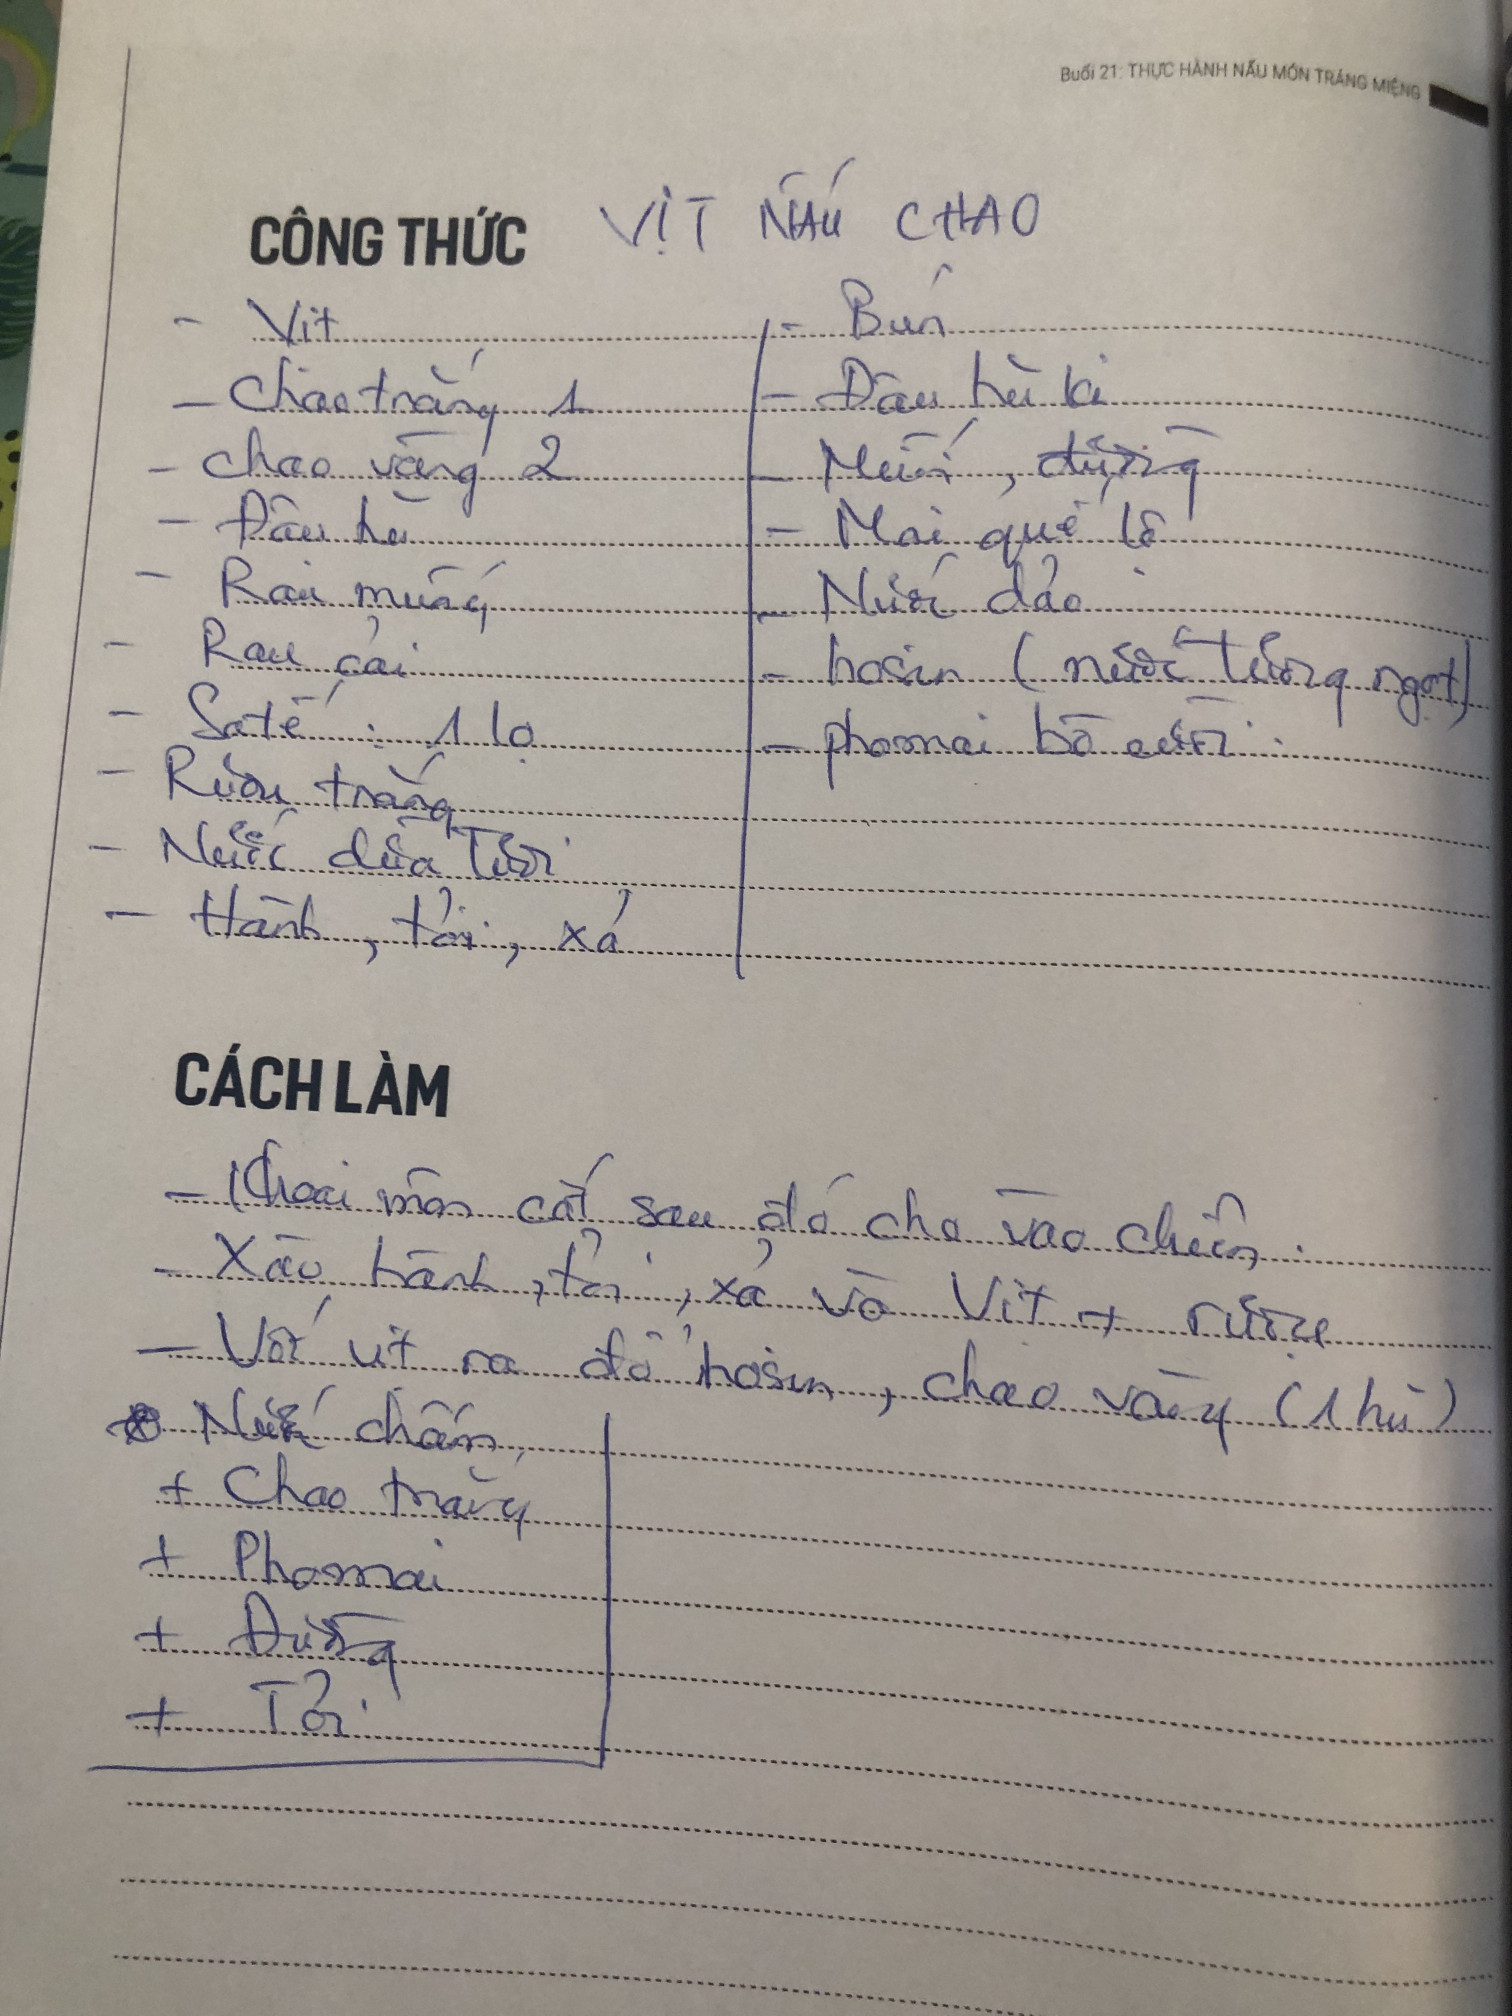 Buổi 21: THỰC HÀNH NẤU MÓN TRÁNG MIỆNG
CÔNG THỨC VỊT NẤU CHAO
- Vịt
- Chao trắng 1
- chao vàng 2
- Đậu hủ
- Rau muống
- Rau cải
- Sa tế : 1 lọ
- Rượu trắng
- Nước dừa tươi
- Hành, tỏi, xả
- Bún
- Đậu hủ ki
- Muối, đường
- Mai quế lộ
- Nước dảo
- hosin (nước tương ngọt)
- phomai bò cười.
CÁCH LÀM
- Khoai môn cắt sau đó cho vào chiên.
- Xào hành, tỏi, xả và Vịt + rượu
- Vớt vịt ra đổ hosin, chao vàng (1 hủ)
Nước chấm
+ Chao trắng
+ Phomai
+ Đường
+ Tỏi